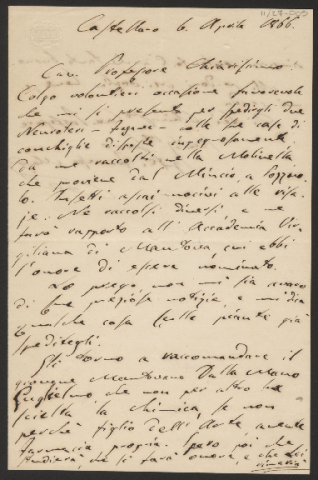 Castellaro 6. Aprile 1866.
Car. Professore Chiarissimo.
Colgo volontieri occasione favorevole
che mi si presenta per spedirgli due
Neurotteri - - colle sue case di
conchiglie disposte ingegnosamente
da me raccolti nella Molinella
che proviene dal Mincio, a Pozzo-
lo. Insetti assai nocivi alle risa-
je. Ne raccolsi diversi e ne
farò rapporto all'Accademia Vir-
giliana di Mantova, cui ebbi
l'onore di essere nominato.
La prego, non mi sia avaro
di sue preziose notizie, e mi dica
qualche cosa sulle piante già
speditegli.
Gli torno a raccomandare il
giovane Mantovano Dalla Mano
Guglielmo che non per altro ha
scielta la chimica, se non
perchè figlio dell'Arte, avente
farmacia propria. Spero poi che
studierà, che si farà onore, e che Lei